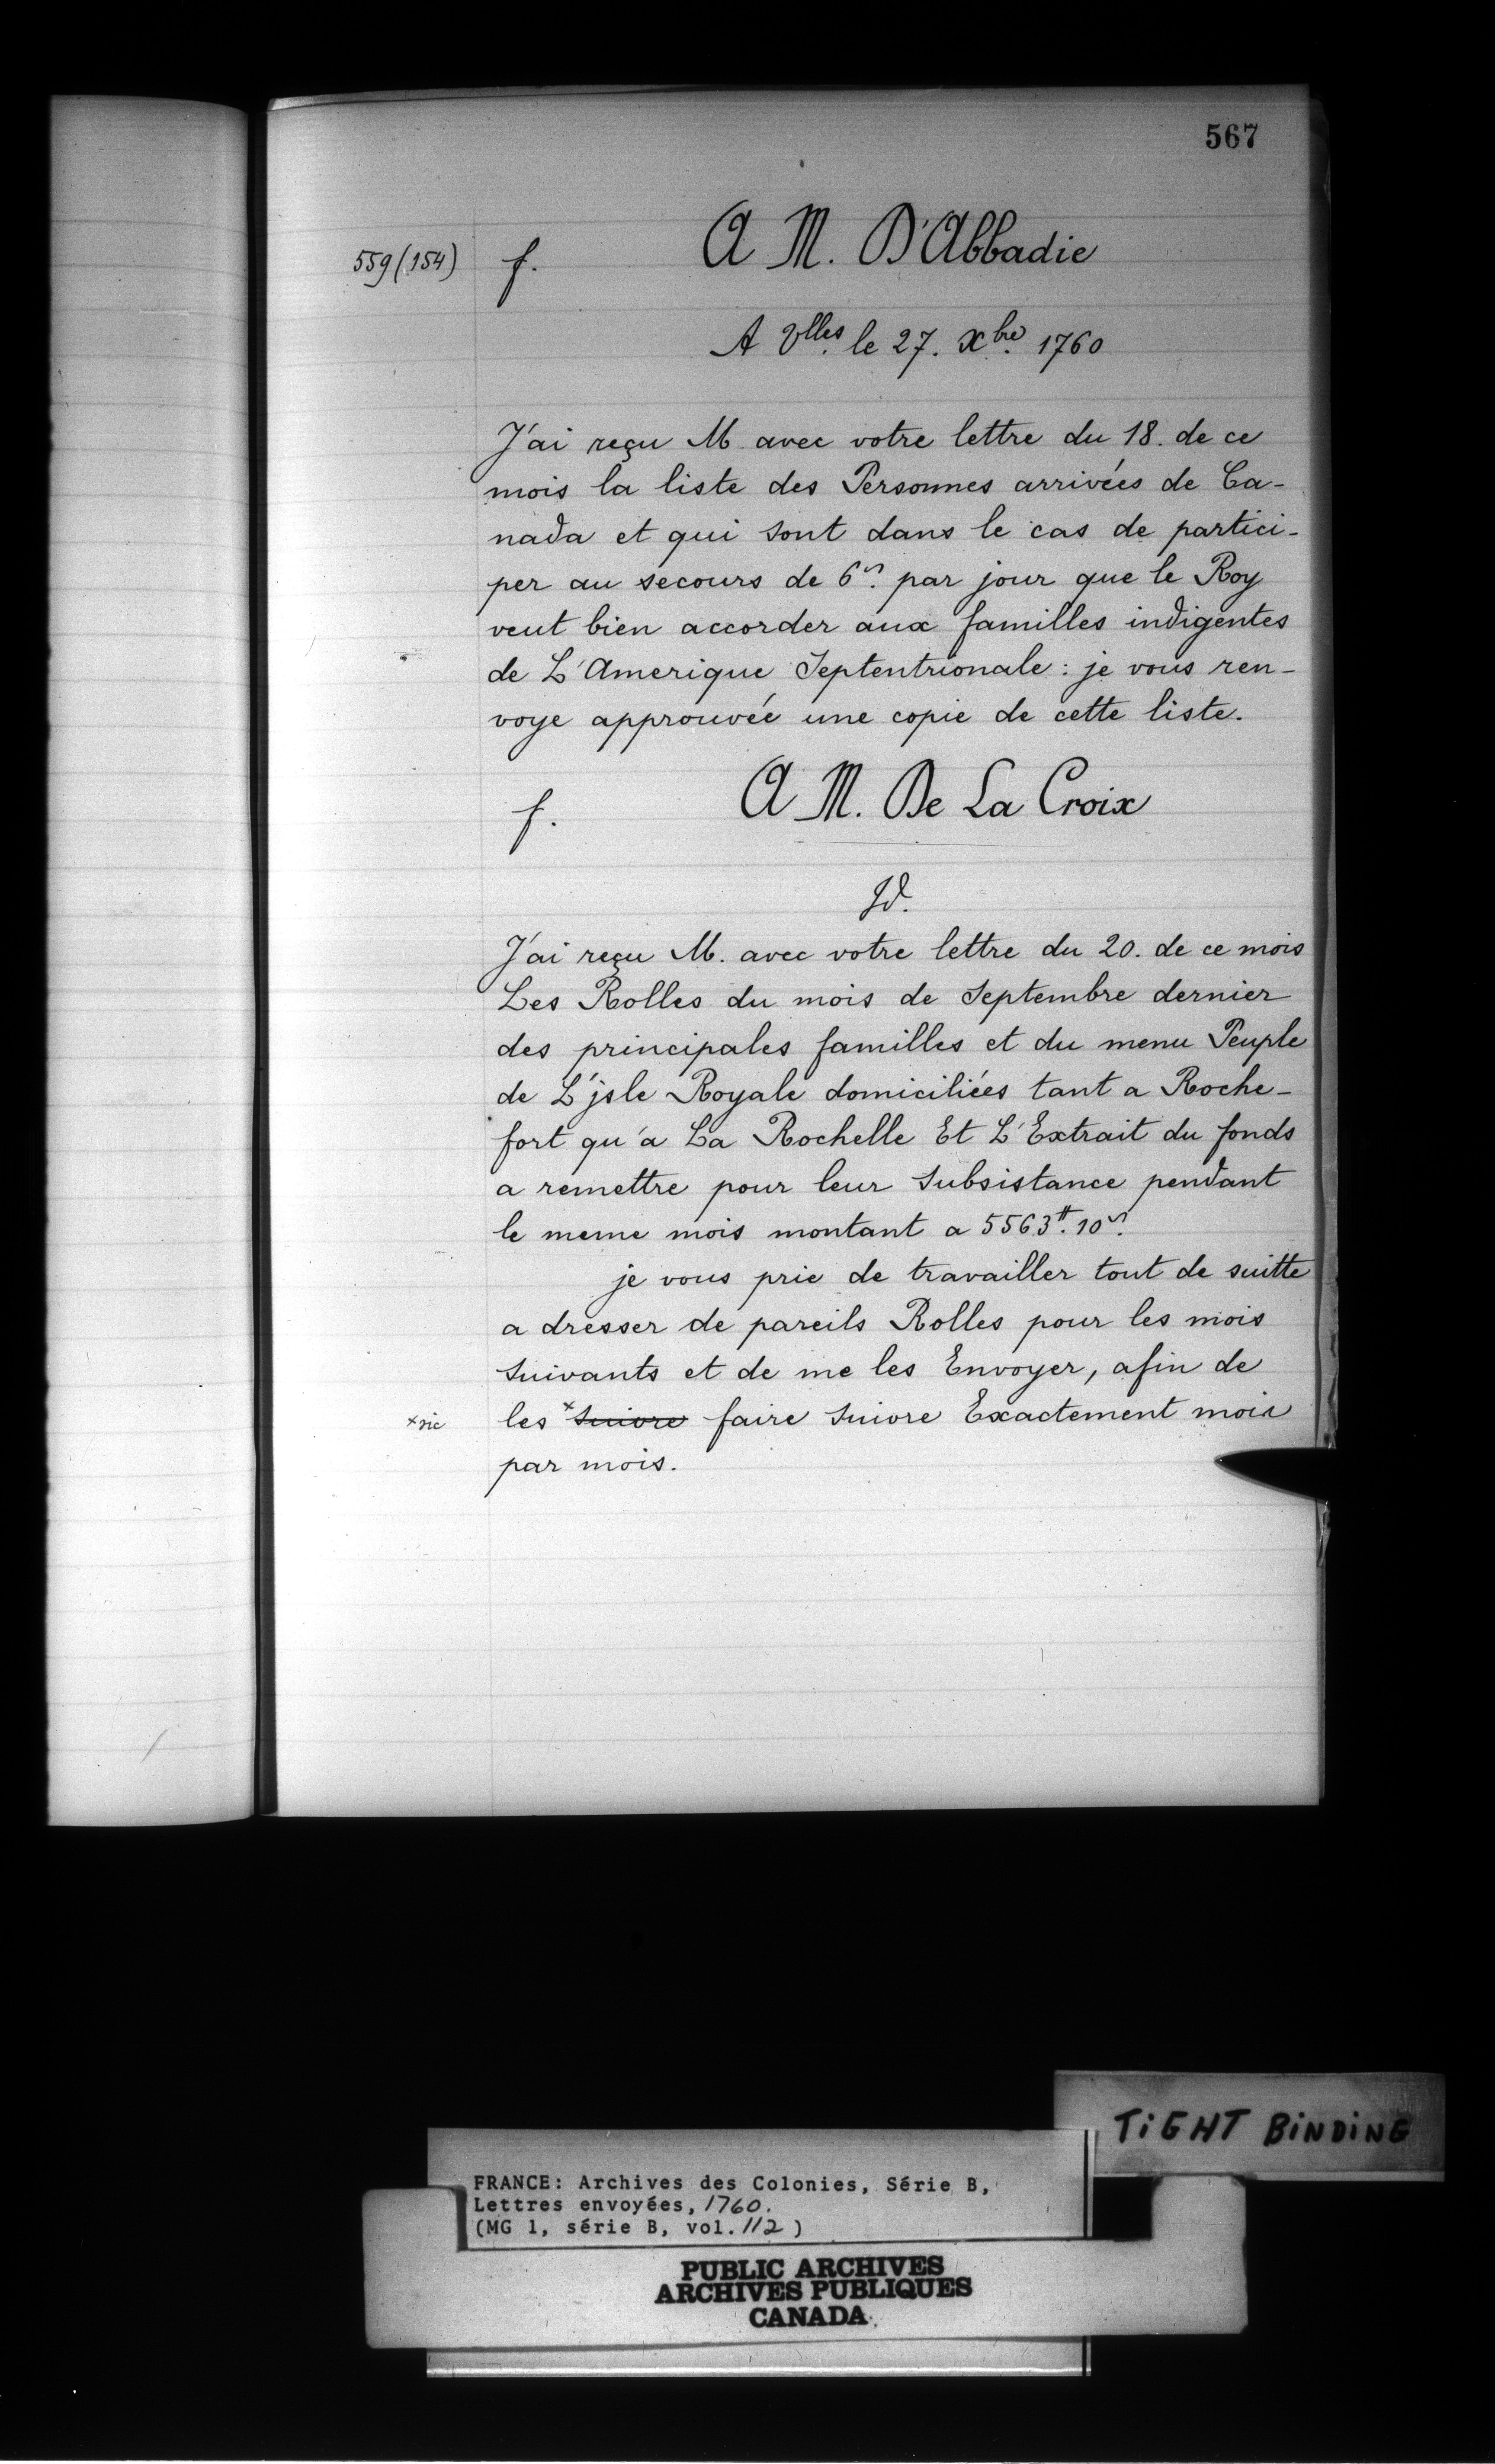 567
559 (154) f. A M. D'Abbadie
A Vlles. le 27. Xbre. 1760
J'ai reçu M. avec votre lettre du 18. de ce
mois la liste des Personnes arrivées de Ca-
nada et qui sont dans le cas de partici-
per au secours de 6s. par jour que le Roy
veut bien accorder aux familles indigentes
de L'Amerique Septentrionale : je vous ren-
voye approuvée une copie de cette liste.
f. A M. De La Croix
Id.
J'ai reçu M. avec votre lettre du 20. de ce mois
Les Rolles du mois de Septembre dernier
des principales familles et du menu Peuple
de L'jsle Royale domiciliées tant a Roche-
fort qu'a La Rochelle Et L'Extrait du fonds
a remettre pour leur Subsistance pendant
le meme mois montant a 5563#. 10s.
je vous prie de travailler tout de suitte
a dresser de pareils Rolles pour les mois
Suivants et de me les Envoyer, afin de
x sic les x suivre faire Suivre Exactement mois
par mois.
TIGHT BINDING
FRANCE: Archives des Colonies, Série B,
Lettres envoyées, 1760.
(MG 1, série B, vol. 112)
PUBLIC ARCHIVES
ARCHIVES PUBLIQUES
CANADA